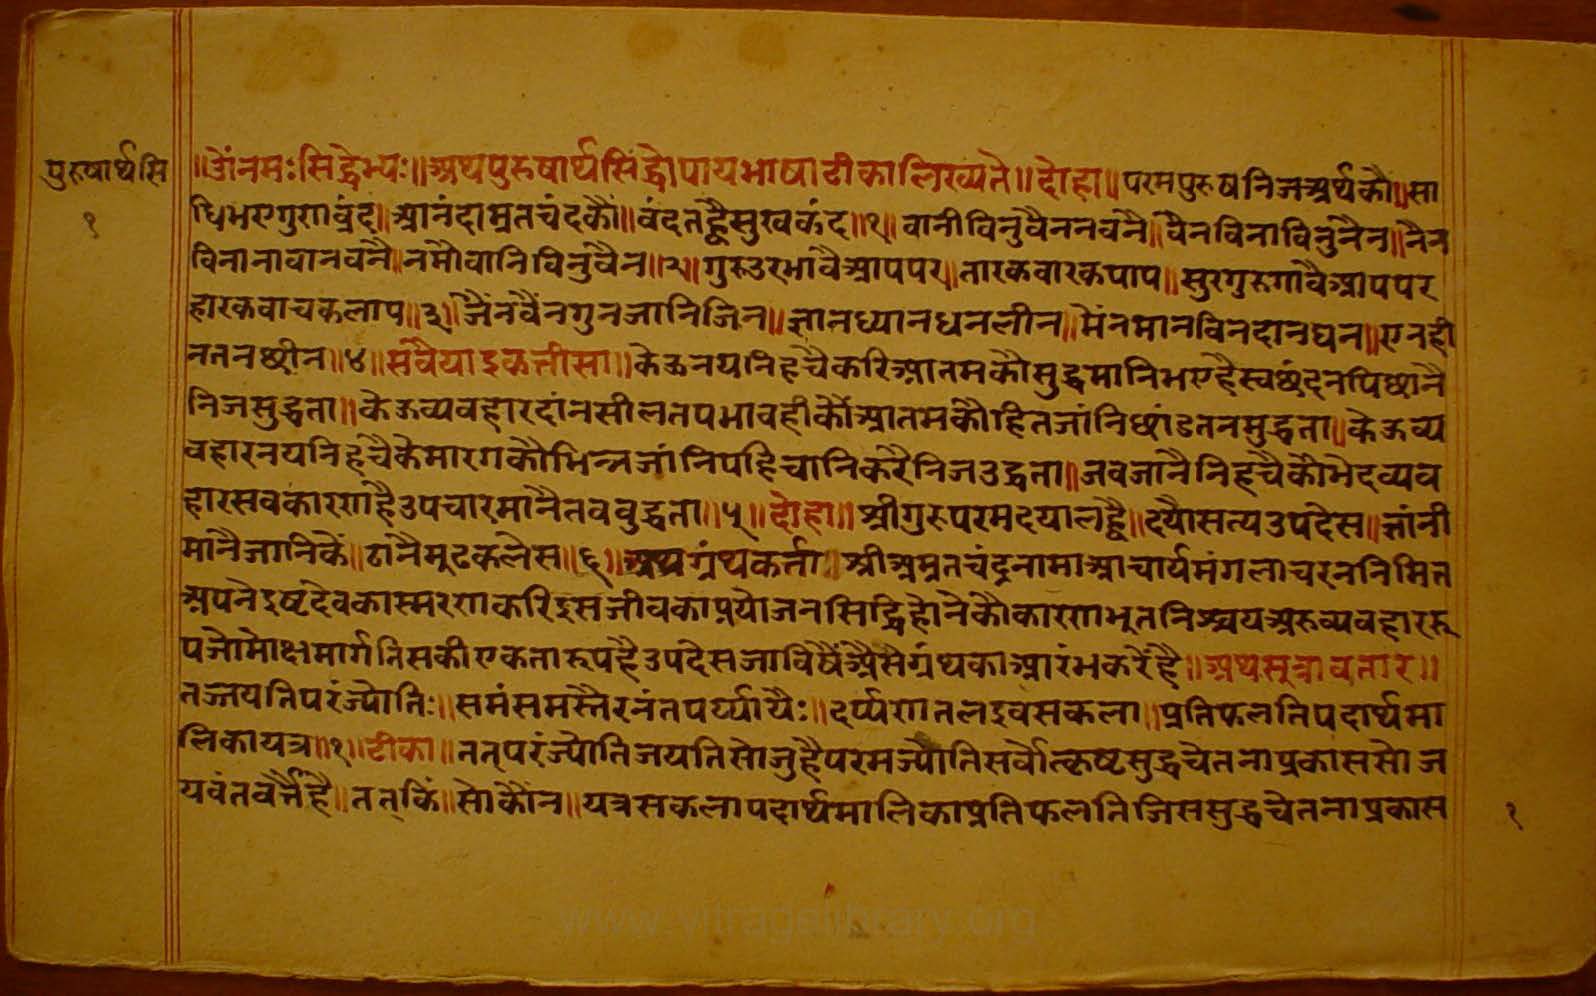 पुरुषार्थसि
१
॥ॐनमःसिद्धेभ्यः॥अथपुरुषार्थसिद्ध्योपायभाषाटीकालिख्यते॥दोहा॥परमपुरुषनिजअर्थकौ॥सा
धिभएगुणवृंद॥आनंदामृतचंदकौं॥वंदतह्वैसुखकंद॥१॥वानीविनुवैननवनै॥वैनविनाविनुनैन॥नैन
विनानावानवनै॥नमौवानिविनुवैन॥२॥गुरुउरभावैआपपर॥तारकवारकपाप॥सुरगुरुगावैआपपर
हारकवाचकलाप॥३॥जैंनवैंनगुनजानिजिन॥ज्ञानध्यानधनलीन॥मैंनमानविनदानघन॥एनही
नतनछीन॥४॥सवैयाइकत्तीसा॥केऊनयनिहचैकरिआतमकौसुद्धमानिभएहैस्वछंदनपिछानै
निजसुद्धता॥केऊव्यवहारदांनसीलतपभावहीकौंआतमकौहितजांनिछांडतनमुद्धता॥केऊव्य
वहारनयनिहचैकेमारगकौभिन्नजांनिपहिचानिकरैनिजउद्धता॥जवजानैनिहचैकौभेदव्यव
हारसवकारणहैउपचारमानैतववुद्धता॥५॥दोहा॥श्रीगुरुपरमदयालह्वै॥दयौसत्यउपदेस॥ज्ञांनी
मांनैजानिकें॥ठानैमुढकलेस॥६॥अथग्रंथकर्त्ता॥श्रीअमृतचंद्रनामाआचार्यमंगलाचरननिमित
अपनेइष्टदेवकास्मरणकरिइसजीवकाप्रयोजनसिद्धिहोनेकौकारणभुतनिश्चयअरुव्यवहाररू
पजोमोक्षमार्गतिसकीएकतारूपहैउपदेसजाविषैंअैसैग्रंथकाआरंभकरेंहै॥अथसूत्रावतार॥
तज्जयतिपरंज्योतिः॥समंसमस्तैरनंतपर्य्यायैः॥दर्प्पणतलइवसकला॥प्रतिफलतिपदार्थमा
लिकायत्र॥१॥टीका॥तत्परंज्योतिजयतिसोजुहैपरमज्योतिसर्वोत्कृष्टसुद्धचेतनाप्रकाससोज
यवंतवर्त्तैहै॥तत्किं॥सोकौंन॥यत्रसकलापदार्थमालिकाप्रतिफलतिजिससुद्धचेतनाप्रकास
१
www.vitragelibrary.org